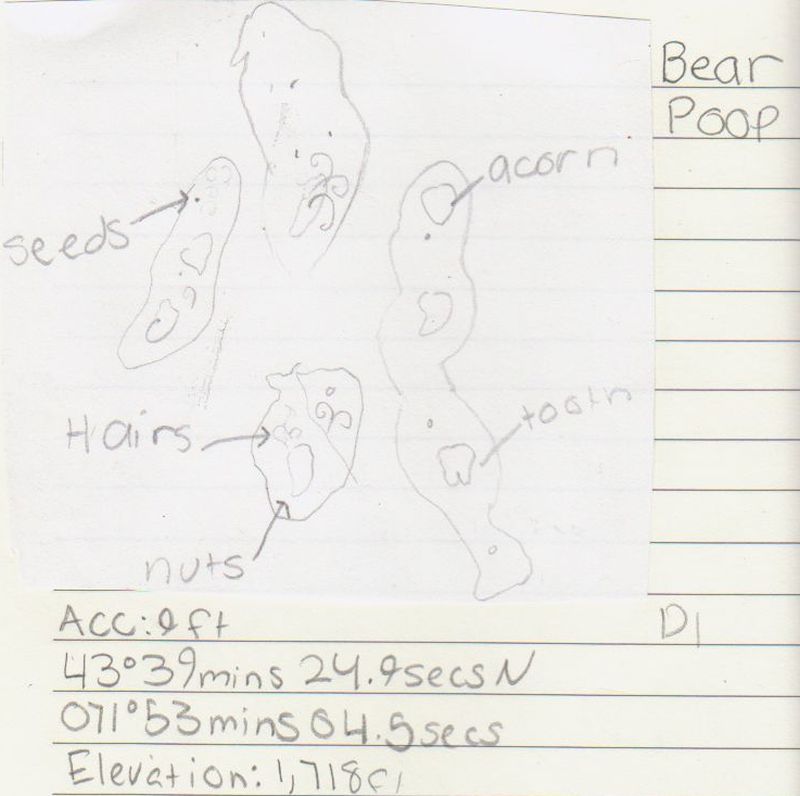 Bear
Poop
acorn
seeds
tooth
Hairs
nuts
Acc: 9ft
D1
43°39mins 24.9secs N
071°53mins 04.5secs
Elevation: 1,718ft